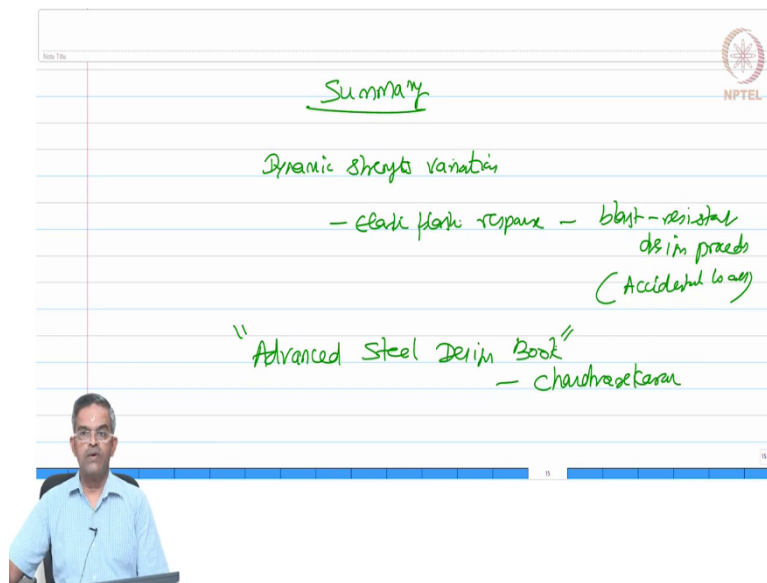 Note Title
NPTEL
Summary
Dynamic strength variation
- Elastic plastic response - blast-resistant
design process
(Accidental loads)
"Advanced Steel Design Book"
- Chandrasekaran
15
15